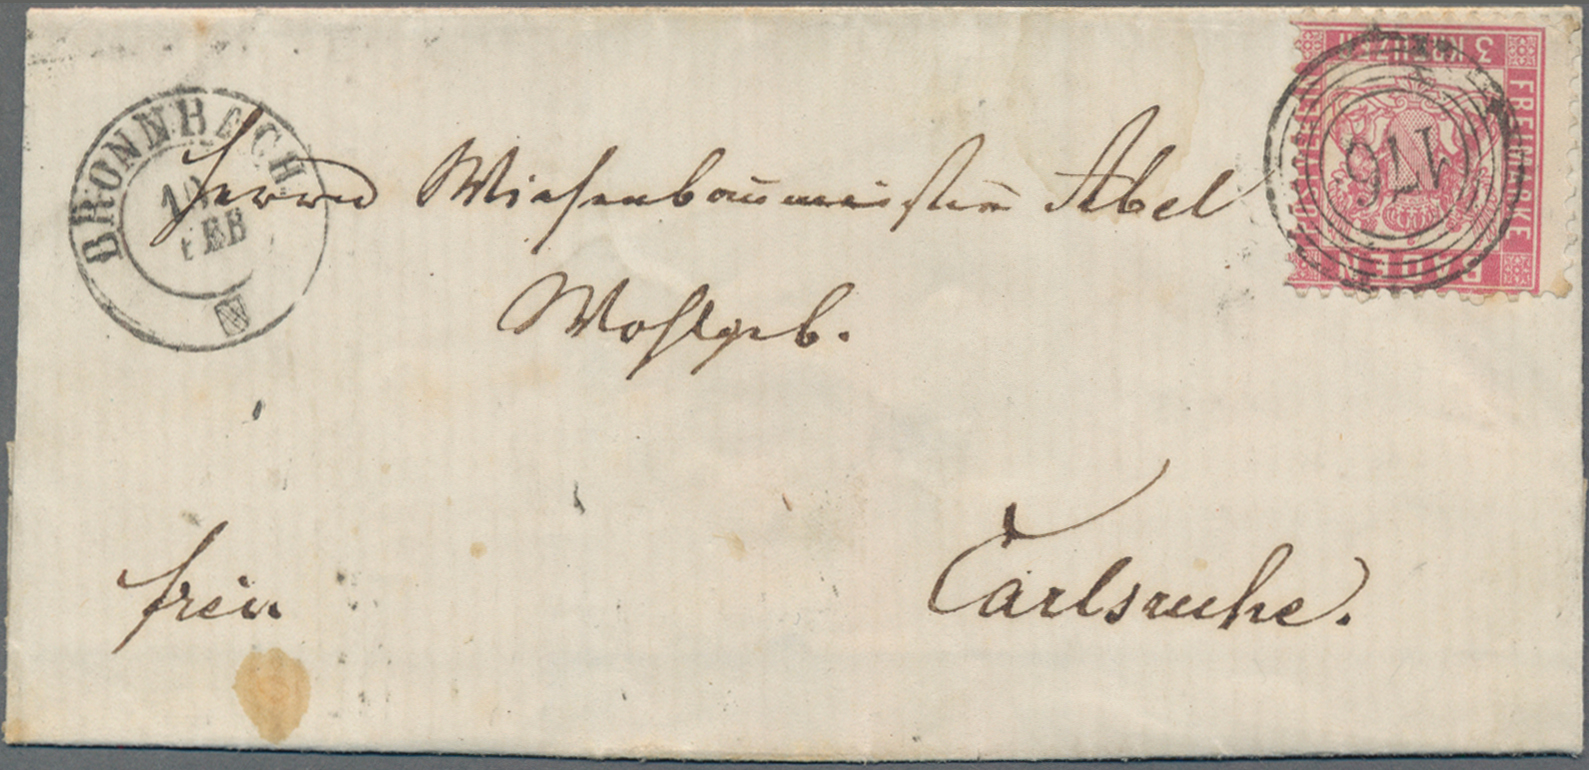 BRONNBACH
10
FEB
3 KREUZER
FREIMARKE
BADEN
176
Herrn Wiesenbaumeister Abel
Wohlgeb.
frei
Carlsruhe.